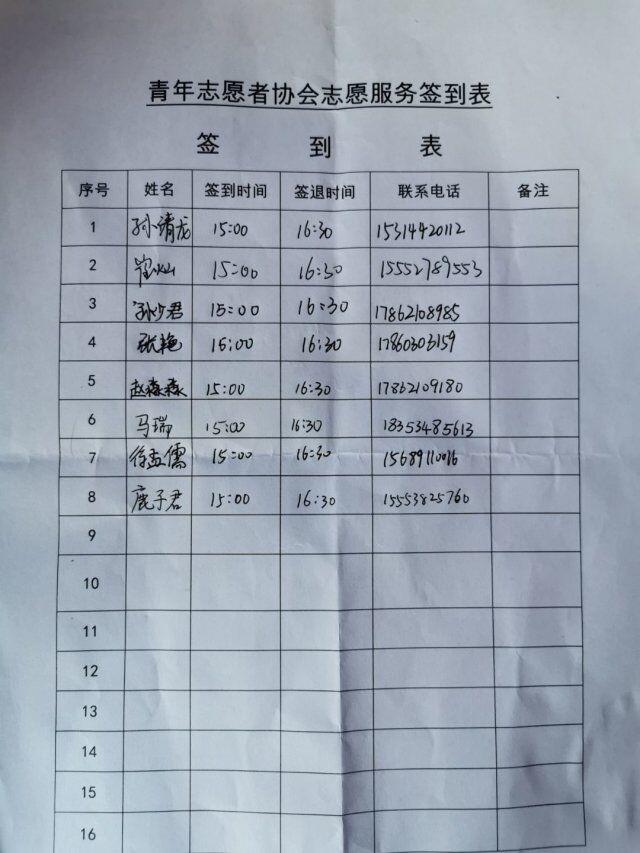 青年志愿者协会志愿服务签到表
签 到 表
序号 姓名 签到时间 签退时间 联系电话 备注
1 孙清龙 15:00 16:30 15314420112
2 崔灿 15:00 16:30 15552789553
3 孙汐君 15:00 16:30 17862108985
4 张艳 15:00 16:30 17860303159
5 赵淼淼 15:00 16:30 17862109180
6 马瑞 15:00 16:30 18353485613
7 徐孟儒 15:00 16:30 15689110016
8 鹿子君 15:00 16:30 15553825760
9
10
11
12
13
14
15
16